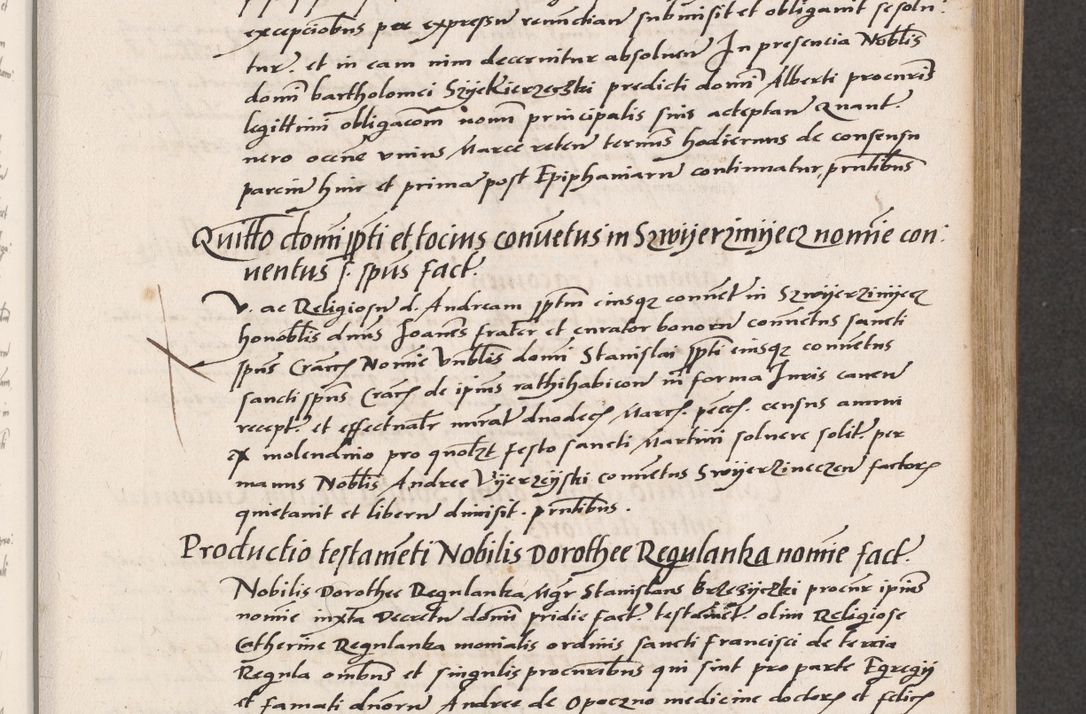 excepciobus per expressu renunctian submisit et obliganit se solu:
tur. et in eam nim decernitur absoluen In presencia Noblis
domi bartholomei Szyekierzeczki predicti domi Alberti procuris
legittimi obligacom nomi principalis suis acceptan Quant.
nero ocene vnius Marce reten terminus hodiernus de consensu
parcin huic et prima post Epiphaniarn continuatur, pntibus
Quitto domi ppti et tocius conuetus in Szwijerzinijecz nomie con:
uentus S. spus fact.
V. ac Religiosu d. Andream pptm eiusqz connet in Szwijerzinijecz
honoblis dnus Joanes frater et curator bonoru connetus sancti
spus Cracs Nomie Vnblis domi Stanislai ppti eiusqz conuetus
sancti spus Cracs de ipius rathihabicon in forma Iuris canen
recept. et effectualr miat duodecs Marcs. peccs. census annui
ex molendino pro quolzt festo sancti Martini soluere solit. per
manus Noblis Andree Vijerzejski conuetus Swijerzineczen factors
quietauit et liberu dimisit. pntibus.
Productio testameti Nobilis Dorothee Regulanka nomie fact.
Nobilis Dorothee Regulanka, Mgr Stanislaus Brzezijczki procur ipius
nomie iuxta Decretu domi pridie fact. testamet. olim Religiose
Catherine Regulanka monialis ordinis sancti Francisci de tercia
Regula ombus et singulis procuribus qui sint pro parte Egregij
et famati dnoru Andree de Opoczno medicine doctors et felics